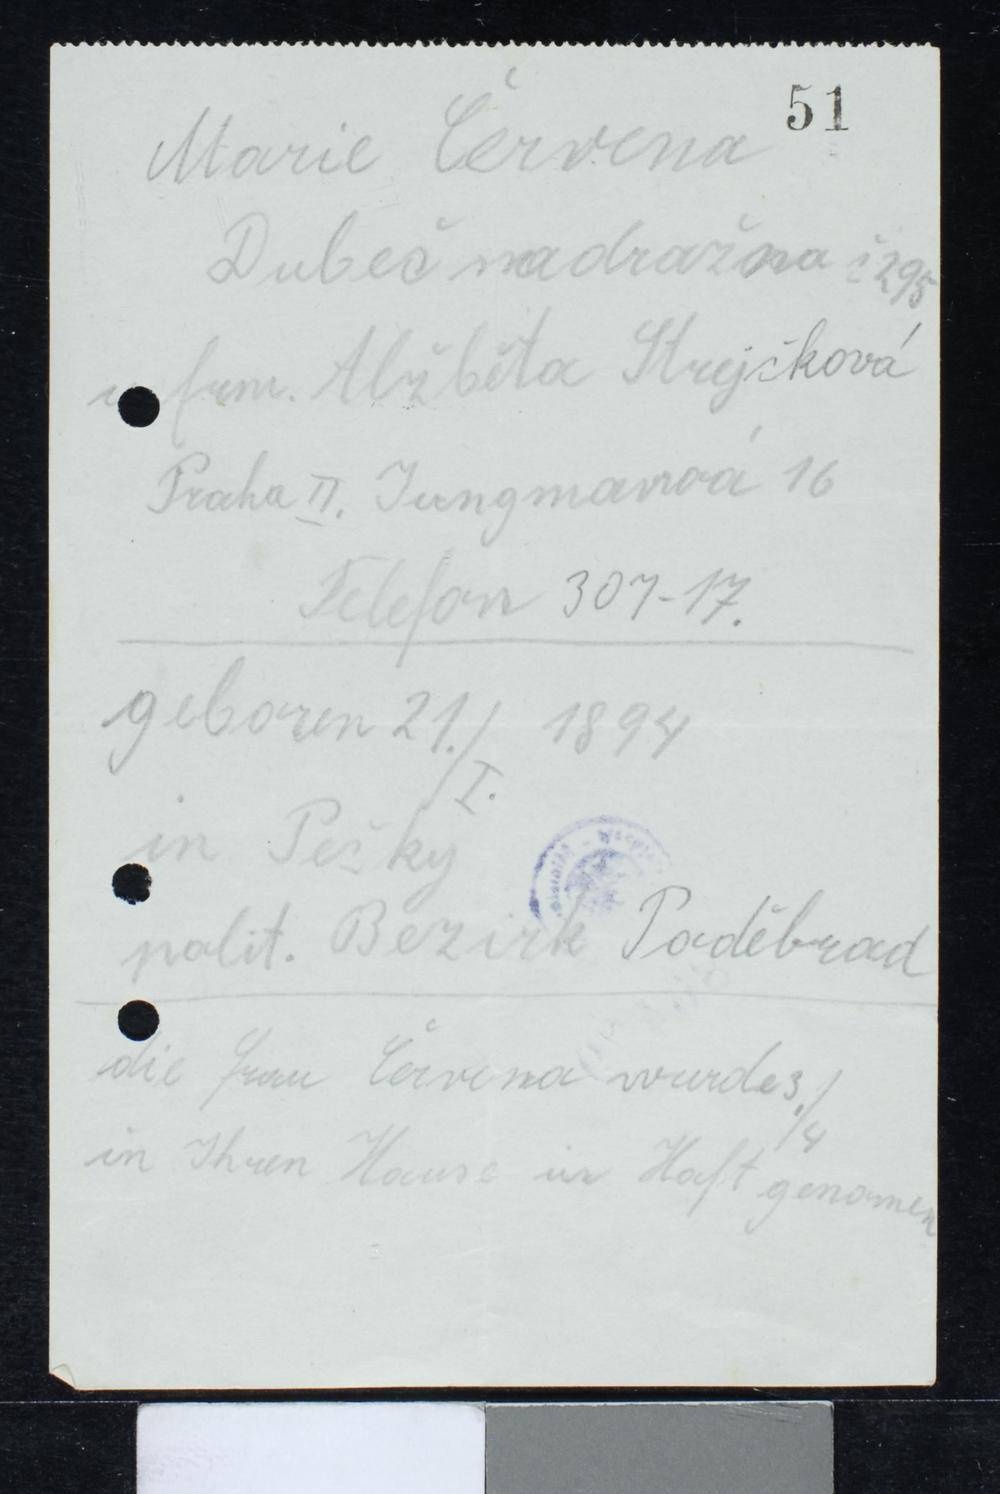 51
Marie Červena
Dubeč nadražna č 295
u firm. Alžběta Strejčková
Praha II. Jungmanová 16
Telefon 307-17.
geboren 21./I. 1894
in Pečky
polit. Bezirk Poděbrad
die Frau Červena wurde 3./4
in Ihren Hause in Haft genomen